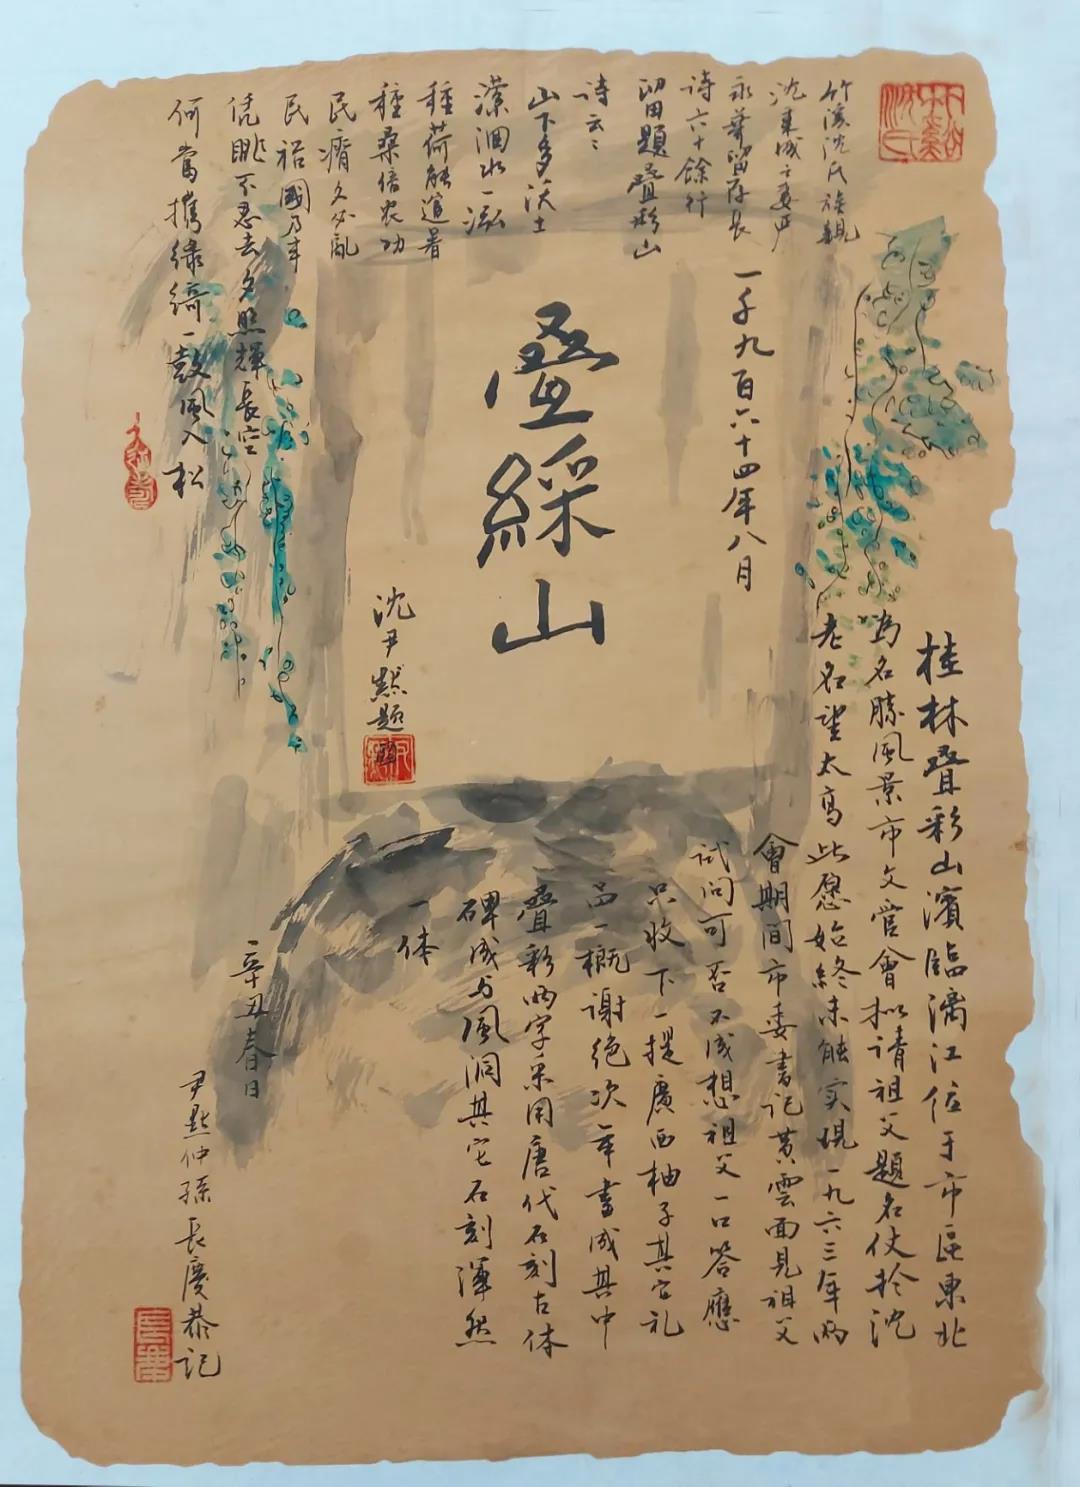 竹溪沈氏族親
永華留存長
詩六十餘行
留題疊彩山
詩云:
山下多沃土
瀠洄水一泓
種荷能逭暑
種桑倍農功
民瘠久必亂
民裕國乃丰
憑眺不忍去夕照輝長空
何當攜綠綺一鼓風入松
一千九百六十四年八月
疊綵山
沈尹默題
桂林疊彩山濱臨漓江位于市區東北
為名勝風景市文管會擬請祖父題名仗於沈
老名望太高此愿始終未能实現一九六三年兩
會期間市委書記黄雲面見祖父
試问可否不成想祖父一口答應
只收下一提廣西柚子其它礼
品一概谢绝次年書成其中
疊彩兩字采用唐代石刻古体
碑成与風洞其它石刻渾然
一体
辛丑春日
尹默仲孫長慶恭記